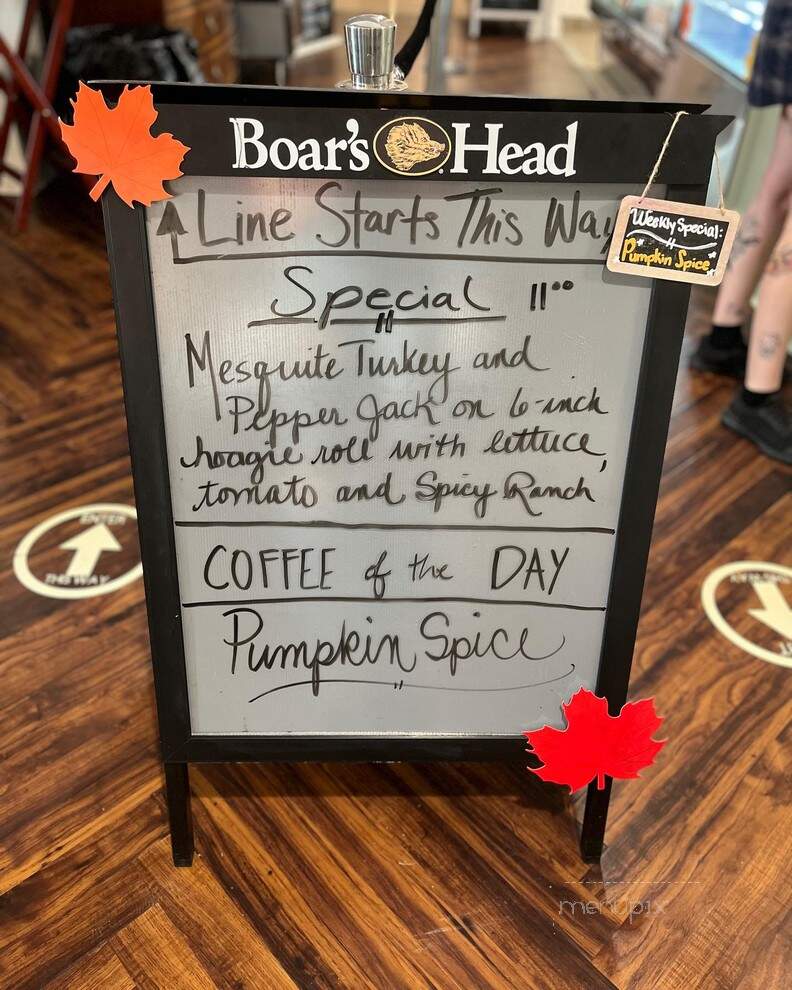 Boar's Head
Line Starts This Way
Weekly Special:
Pumpkin Spice
Special 11.00
Mesquite Turkey and
Pepper Jack on 6-inch
hoagie roll with lettuce,
tomato and Spicy Ranch
COFFEE of the DAY
Pumpkin Spice
ENTER
THIS WAY
menupix